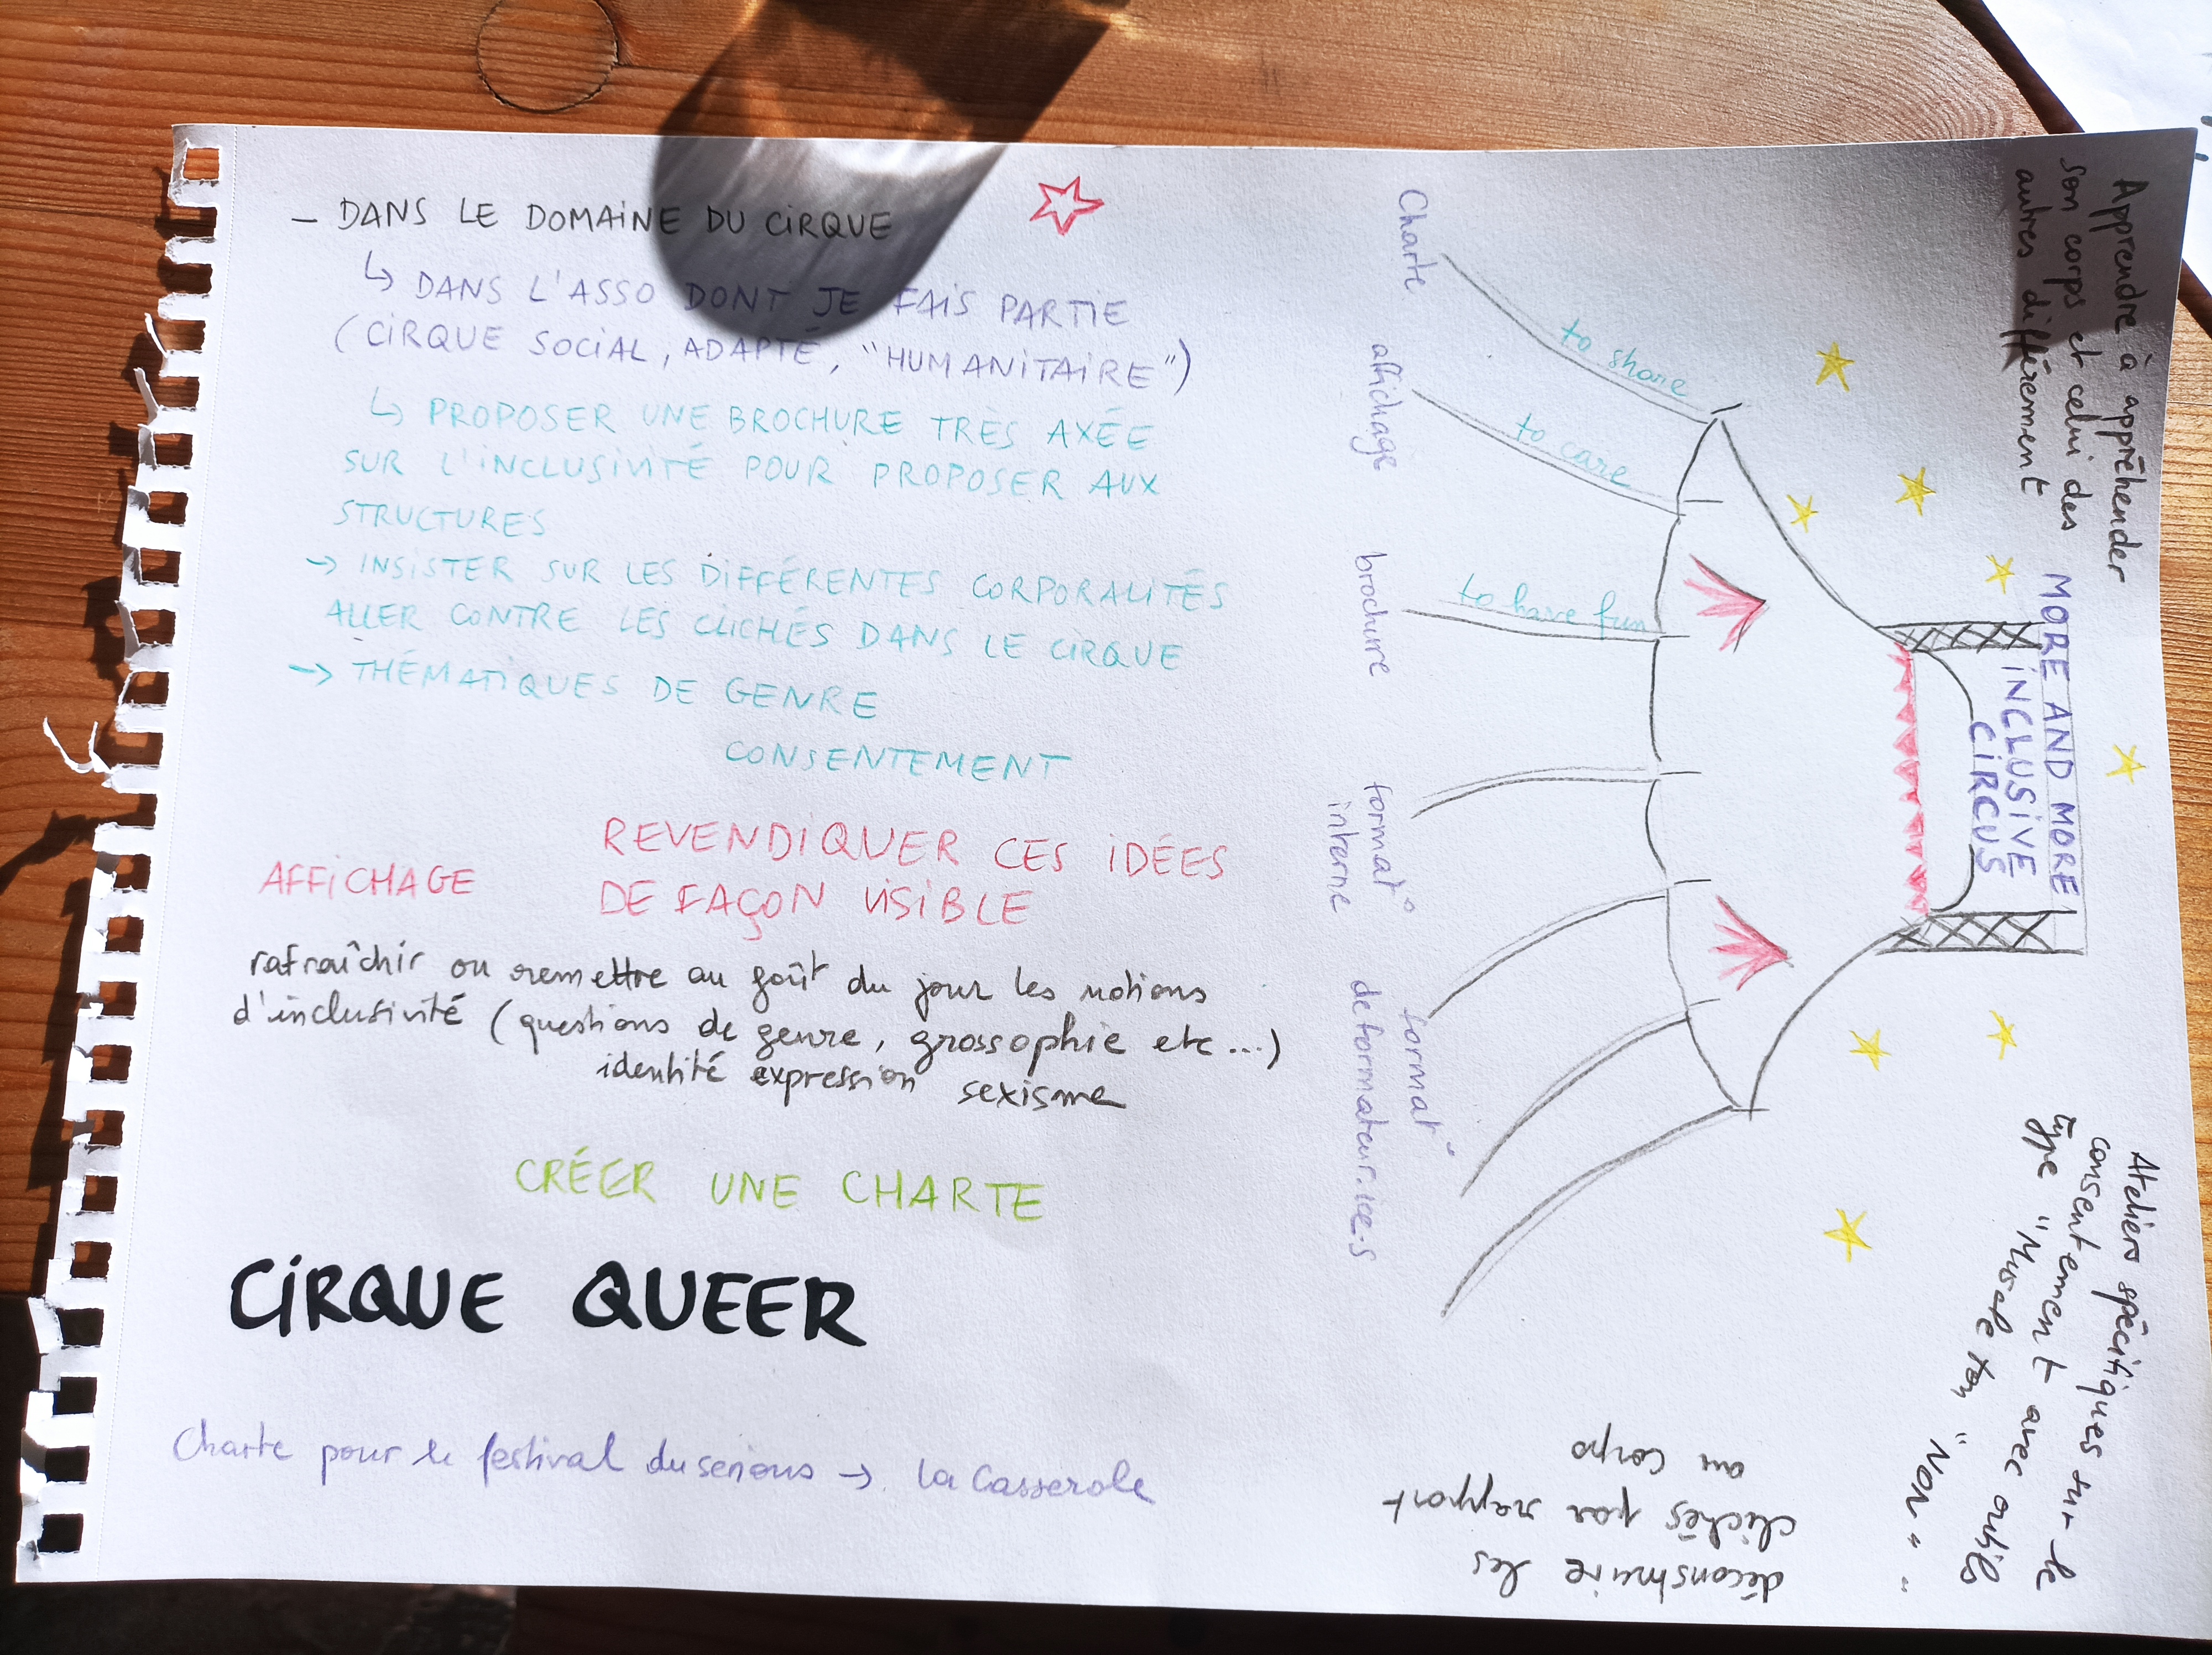 – DANS LE DOMAINE DU CIRQUE
↳ DANS L'ASSO DONT JE FAIS PARTIE
(CIRQUE SOCIAL, ADAPTÉ, "HUMANITAIRE")
↳ PROPOSER UNE BROCHURE TRÈS AXÉE
SUR L'INCLUSIVITÉ POUR PROPOSER AUX
STRUCTURES
→ INSISTER SUR LES DIFFÉRENTES CORPORALITÉS
ALLER CONTRE LES CLICHÉS DANS LE CIRQUE
→ THÉMATIQUES DE GENRE
CONSENTEMENT
REVENDIQUER CES IDÉES
DE FAÇON VISIBLE
AFFICHAGE
rafraîchir ou remettre au goût du jour les notions
d'inclusivité (questions de genre, grossophie etc...)
identité expression sexisme
CRÉER UNE CHARTE
CIRQUE QUEER
Charte pour le festival → la Casserole
Apprendre à appréhender
son corps et celui des
autres différement
MORE AND MORE
INCLUSIVE
CIRCUS
to share
to care
to have fun
Charte
affichage
brochure
format°
interne
format°
de formateur.ice.s
Ateliers spécifiques sur le
consentement avec outils
type "Muscle ton "Non" "
déconstruire les
clichés par rapport
au corps